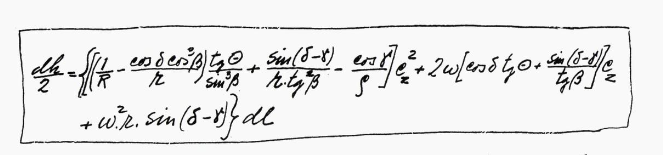 dh/2 = {[(1/R - cosδ cos²β/r) tgΘ/sin³β + sin(δ-γ)/(r.tg²β) - cosγ/ρ] c_z² + 2ω[cosδ tgΘ + sin(δ-γ)/tgβ] c_z
+ ω².r. sin(δ-γ)} dl